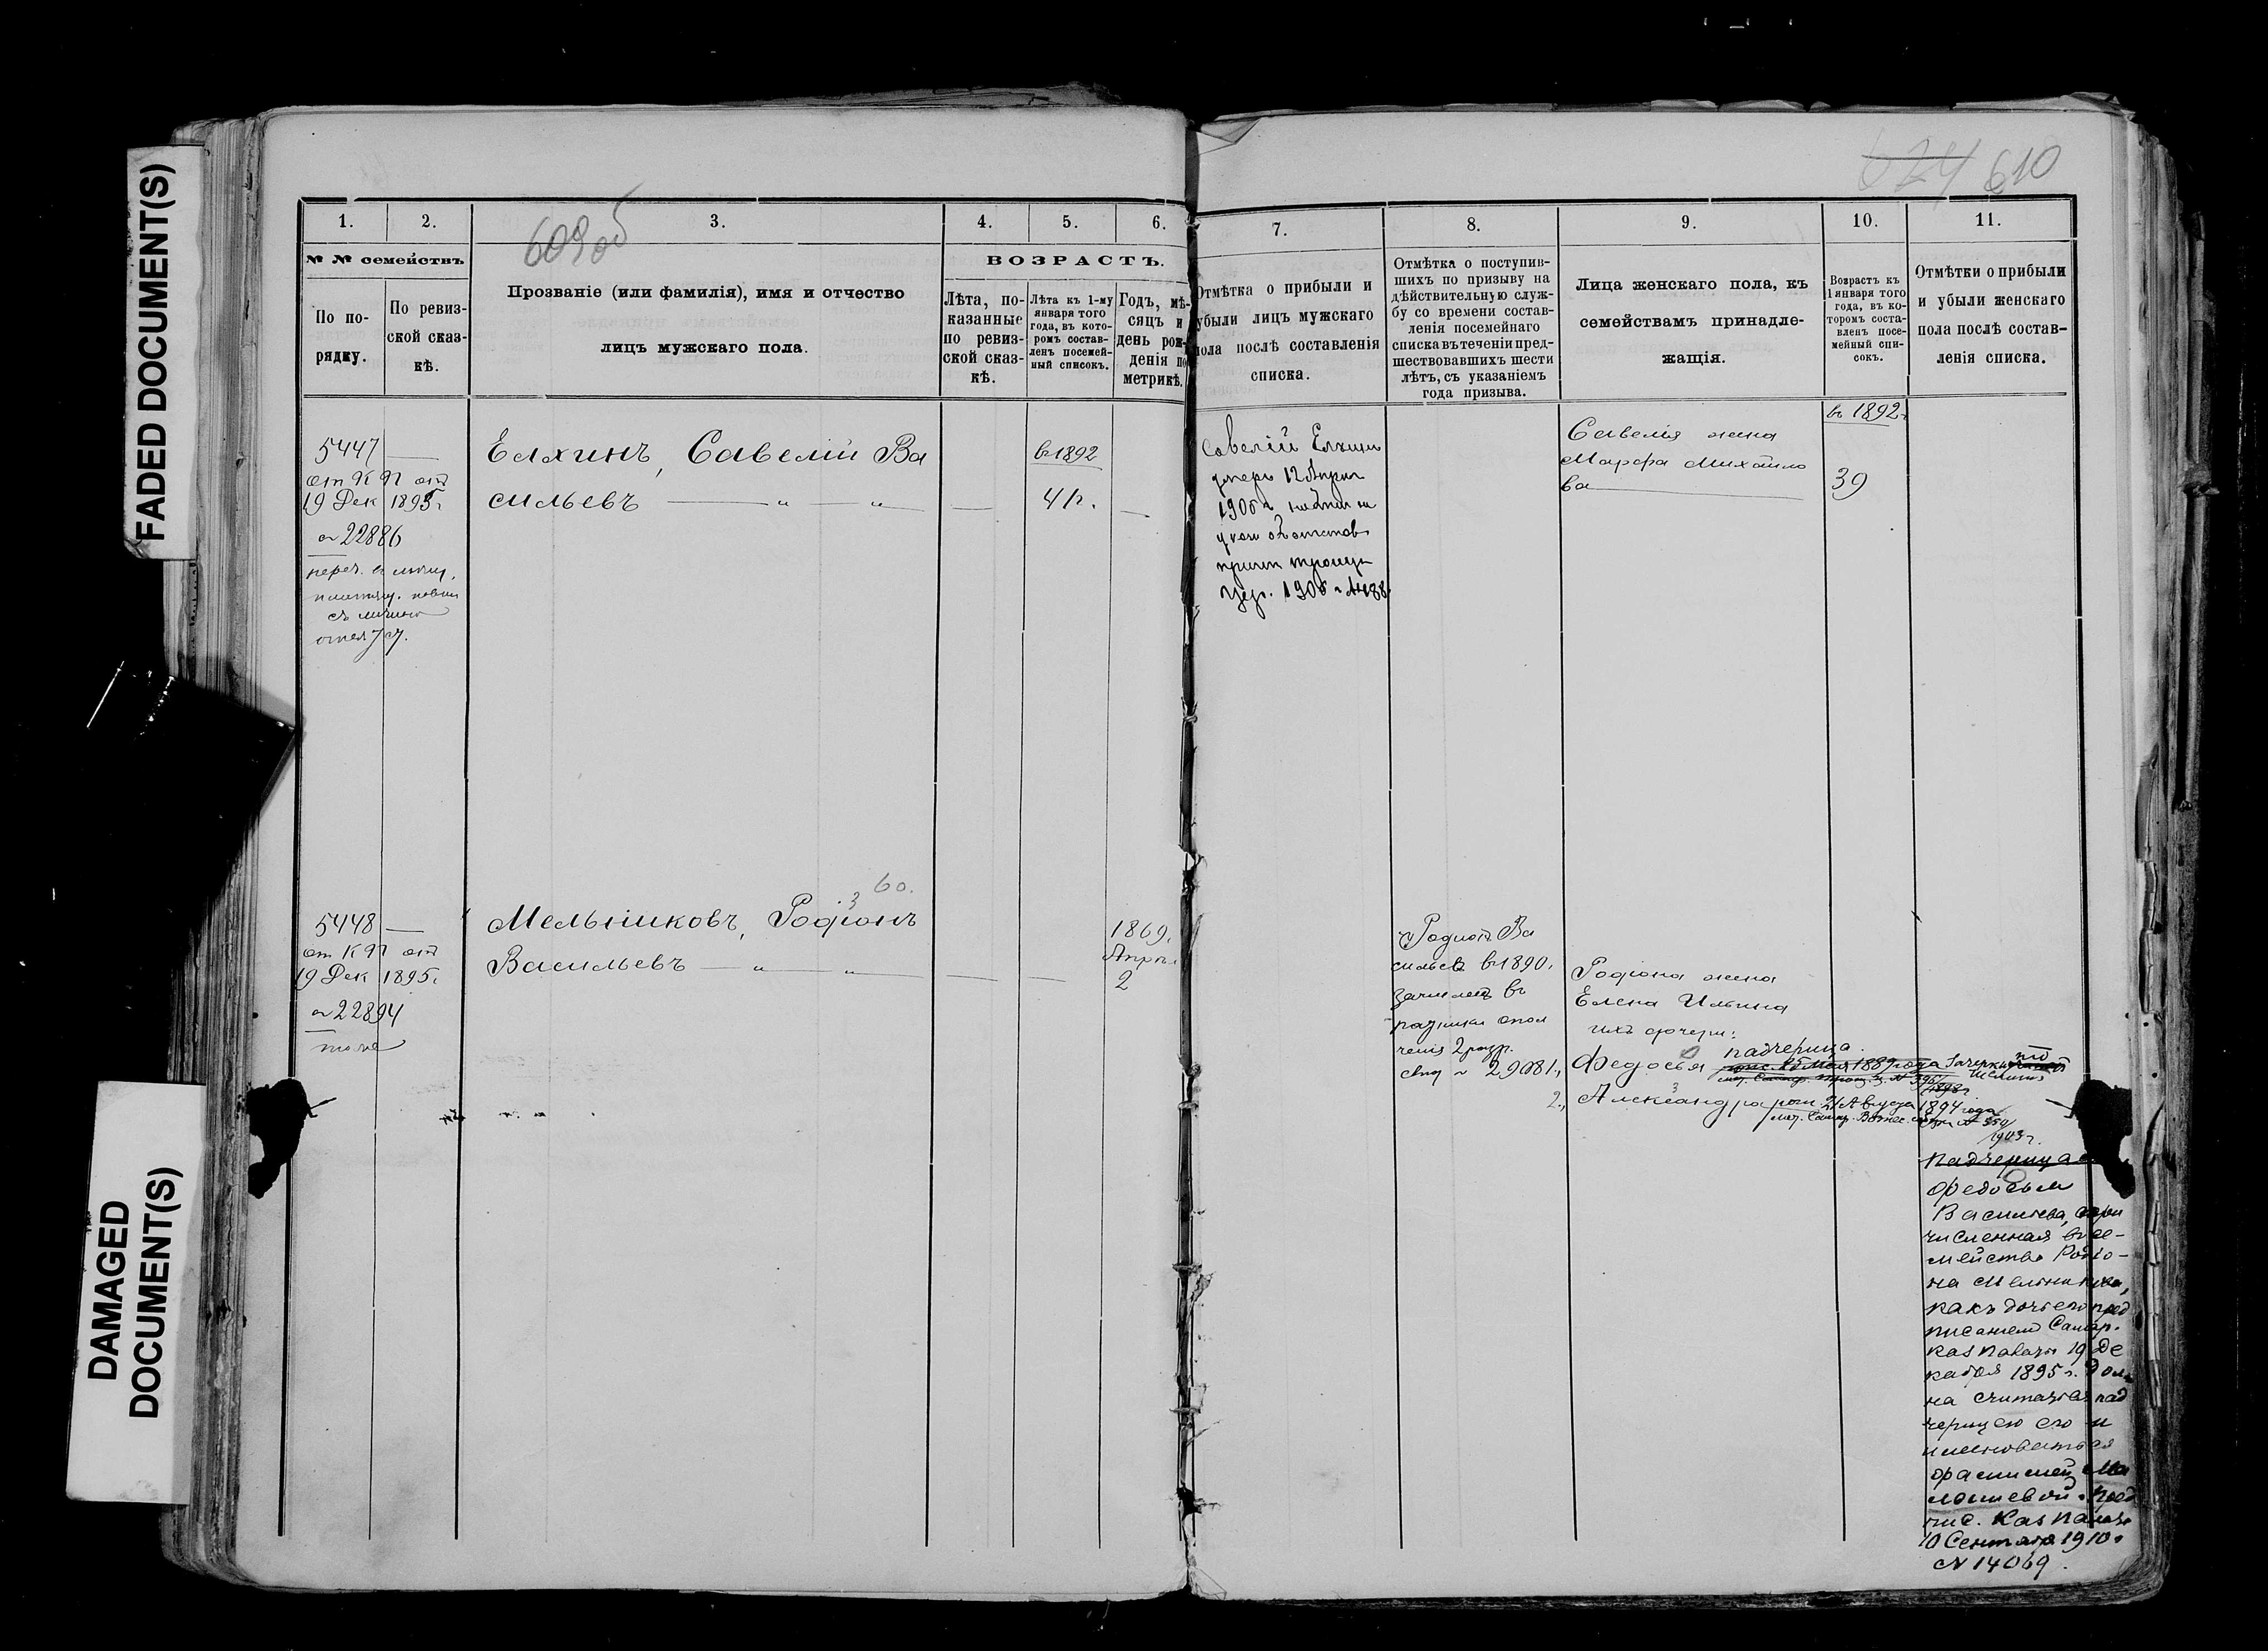 FADED DOCUMENT(S)
DAMAGED
DOCUMENT(S)
609об
624 610
1.
2.
3.
4.
5.
6.
7.
8.
9.
10.
11.
№ № семействъ
По по-
рядку.
По ревиз-
ской сказ-
кѣ.
Прозваніе (или фамилія), имя и отчество
лицъ мужскаго пола.
ВОЗРАСТЪ.
Лѣта, по-
казанные
по ревиз-
ской сказ-
кѣ.
Лѣта къ 1-му
января того
года, въ кото-
ромъ состав-
ленъ посемей-
ный списокъ.
Годъ, мѣ-
сяцъ и
день рож-
денія по
метрикѣ.
Отмѣтка о прибыли и
убыли лицъ мужскаго
пола послѣ составленія
списка.
Отмѣтка о поступив-
шихъ по призыву на
дѣйствительную служ-
бу со времени состав-
ленія посемейнаго
списка въ теченіи пред-
шествовавшихъ шести
лѣтъ, съ указаніемъ
года призыва.
Лица женскаго пола, къ
семействамъ принадле-
жащія.
Возрастъ къ
1 января того
года, въ ко-
торомъ соста-
вленъ посе-
мейный спи-
сокъ.
Отмѣтки о прибыли
и убыли женскаго
пола послѣ состав-
ленія списка.
5447
от КП от
19 Дек 1895г
№ 22886
Елхинъ, Савелій Ва
сильевъ
в 1892
41.
Савелій Елхинъ
умеръ 12 Апрѣл
Савелія жена
Марфа Михайло
ва
въ 1892г
39
5448
от КП от
19 Дек 1895г
№ 22894
тоже
60.
3
Мельниковъ, Родіонъ
Васильевъ
1869.
Апрѣл
2
Родіонъ Ва
сильевъ в 1890г
зачисленъ въ
ратники опол
ченія 2 разр.
свид № 29081.
Родіона жена
Елена Ильина
ихъ дочери:
падчерица
Федосья
2., Александра род. 21 Августа 1894 года
1903 г.
Падчерица
Федосья
Васильева, при
численная въ се-
мейство Родіо-
на Мельникова,
какъ дочь его пред
писаніем Самар.
Каз Палаты 19 Де
кабря 1895 г. Долж
на считаться пад
черицею его и
именоваться
фамиліей Ма
лышевой. Пред
пис. Каз Палаты
10 Сентября 1910 г
№ 14069.